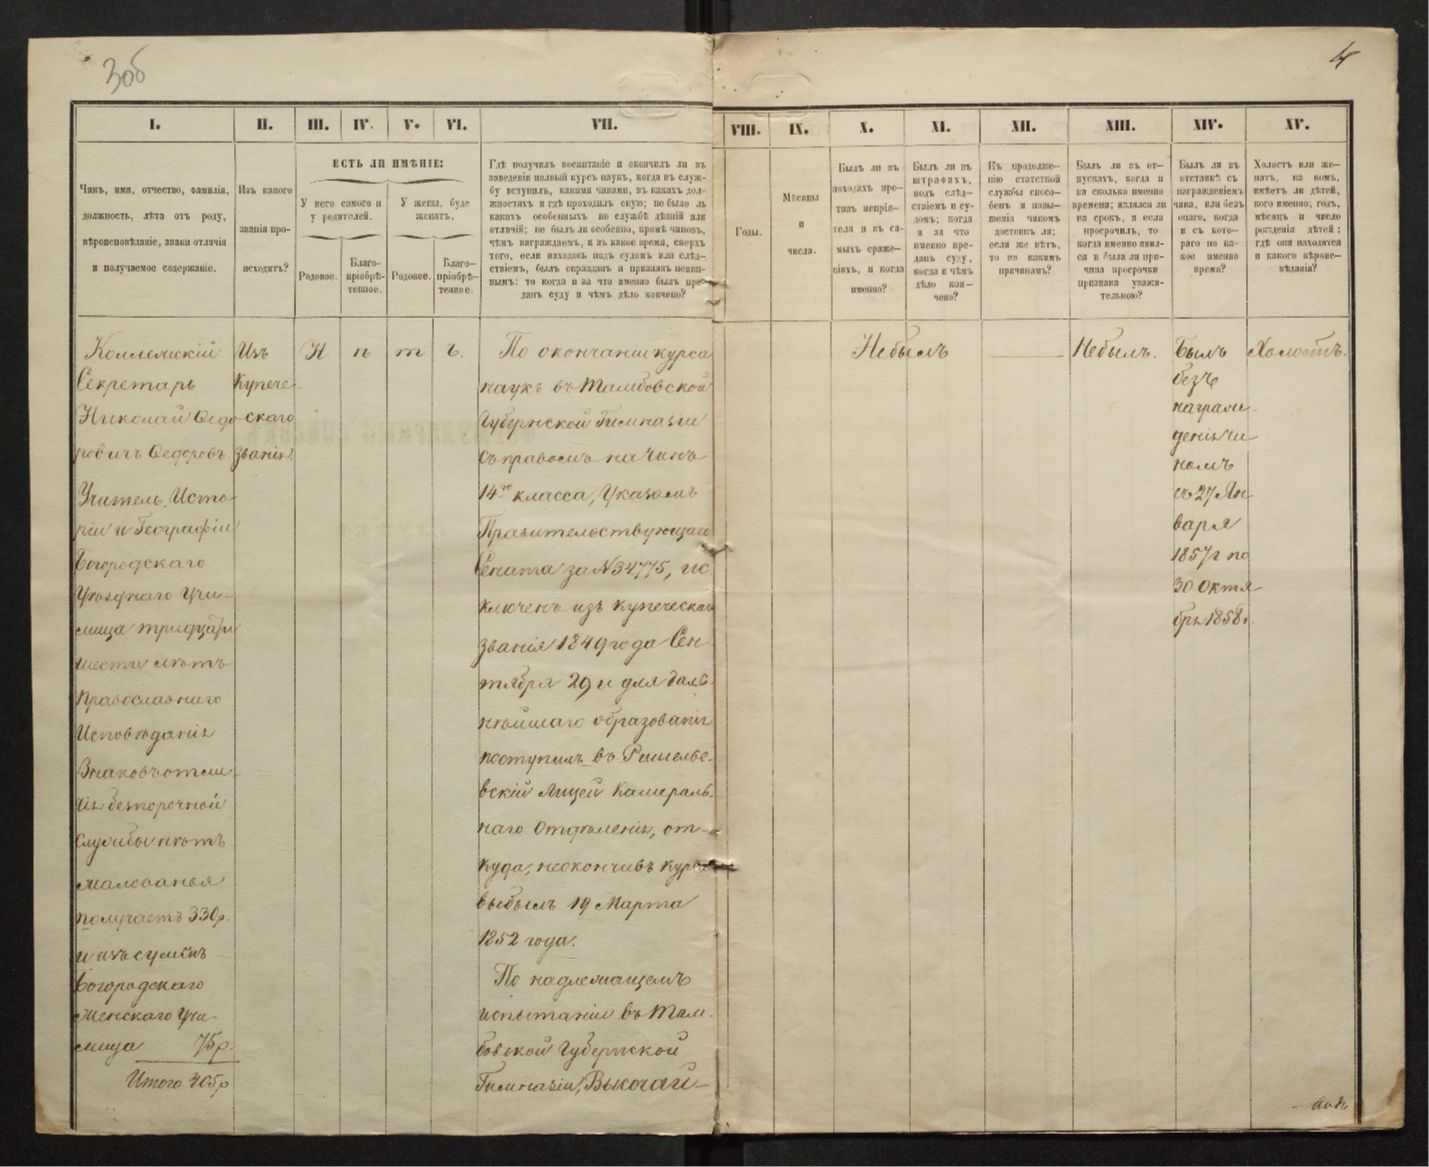 3об
4
I.
II.
III.
IV.
V.
VI.
VII.
VIII.
IX.
X.
XI.
XII.
XIII.
XIV.
XV.
Чинъ, имя, отчество, фамилія,
должность, лѣта отъ роду,
вѣроисповѣданіе, знаки отличія
и получаемое содержаніе.
Изъ какого
званія про-
исходитъ?
ЕСТЬ ЛИ ИМѢНІЕ:
У него самого и
у родителей.
У жены, буде
женатъ.
Родовое.
Благо-
пріобрѣ-
тенное.
Родовое.
Благо-
пріобрѣ-
тенное.
Гдѣ получилъ воспитаніе и окончилъ ли въ
заведеніи полный курсъ наукъ, когда въ служ-
бу вступилъ, какими чинами, въ какихъ дол-
жностяхъ и гдѣ проходилъ оную; не было ль
какихъ особенныхъ по службѣ дѣяній или
отличій; не былъ ли особенно, кромѣ чиновъ,
чѣмъ награждаемъ, и въ какое время, сверхъ
того, если находясь подъ судомъ или слѣд-
ствіемъ, былъ оправданъ и признанъ невин-
нымъ: то когда и за что именно былъ пре-
данъ суду и чѣмъ дѣло кончено?
Годы.
Мѣсяцы
и
числа.
Былъ ли въ
походахъ про-
тивъ непрія-
теля и въ са-
мыхъ сраже-
ніяхъ, и когда
именно?
Былъ ли въ
штрафахъ,
подъ слѣд-
ствіемъ и су-
домъ; когда
и за что
именно пре-
данъ суду,
когда и чѣмъ
дѣло кон-
чено?
Къ продолже-
нію статской
службы спосо-
бенъ и повы-
шенія чиномъ
достоинъ ли;
если же нѣтъ,
то по какимъ
причинамъ?
Былъ ли въ от-
пускахъ, когда и
на сколько именно
времени; явился ли
на срокъ, и если
просрочилъ, то
когда именно явил-
ся и была ли при-
чина просрочки
признана уважи-
тельною?
Былъ ли въ
отставкѣ съ
награжденіемъ
чина, или безъ
онаго, когда
и съ кото-
раго по ка-
кое именно
время?
Холостъ или же-
натъ, на комъ,
имѣетъ ли дѣтей,
кого именно; годъ,
мѣсяцъ и число
рожденія дѣтей;
гдѣ они находятся
и какого вѣроис-
вѣданія?
Коллежскій
Секретарь
Николай Ѳедо-
ровичъ Ѳедоровъ
Учитель Исто-
ріи и Географіи
Богородскаго
Уѣзднаго Учи-
лища тридцати
шести лѣтъ
Православнаго
Исповѣданія
Знаковъ отли-
чія безпорочной
службы нѣтъ
Жалованья
получаетъ 330р.
и изъ суммъ
Богородскаго
Женскаго Учи-
лища 75р.
Итого 405р
Изъ
Купече-
скаго
званія.
Н ѣ т ъ.
По окончаніи курса
наукъ въ Тамбовской
Губернской Гимназіи
съ правомъ на чинъ
14го класса, Указомъ
Правительствующаго
Сената за №34775, ис-
ключенъ изъ купеческаго
званія 1849 года Сен-
тября 29 и для даль-
нѣйшаго образованія
поступилъ въ Ришелье-
вскій Лицей Камераль-
наго Отдѣленія, от-
куда, неокончивъ курса
выбылъ 19 Марта
1852 года.
По надлежащемъ
испытаніи въ Там-
бовской Губернской
Гимназіи, Высочай-
Небылъ
Небылъ.
Былъ
безъ
награж-
денія чи-
номъ
съ 27 Ян-
варя
1857г по
30 Октя-
бря 1858г.
Холостъ.